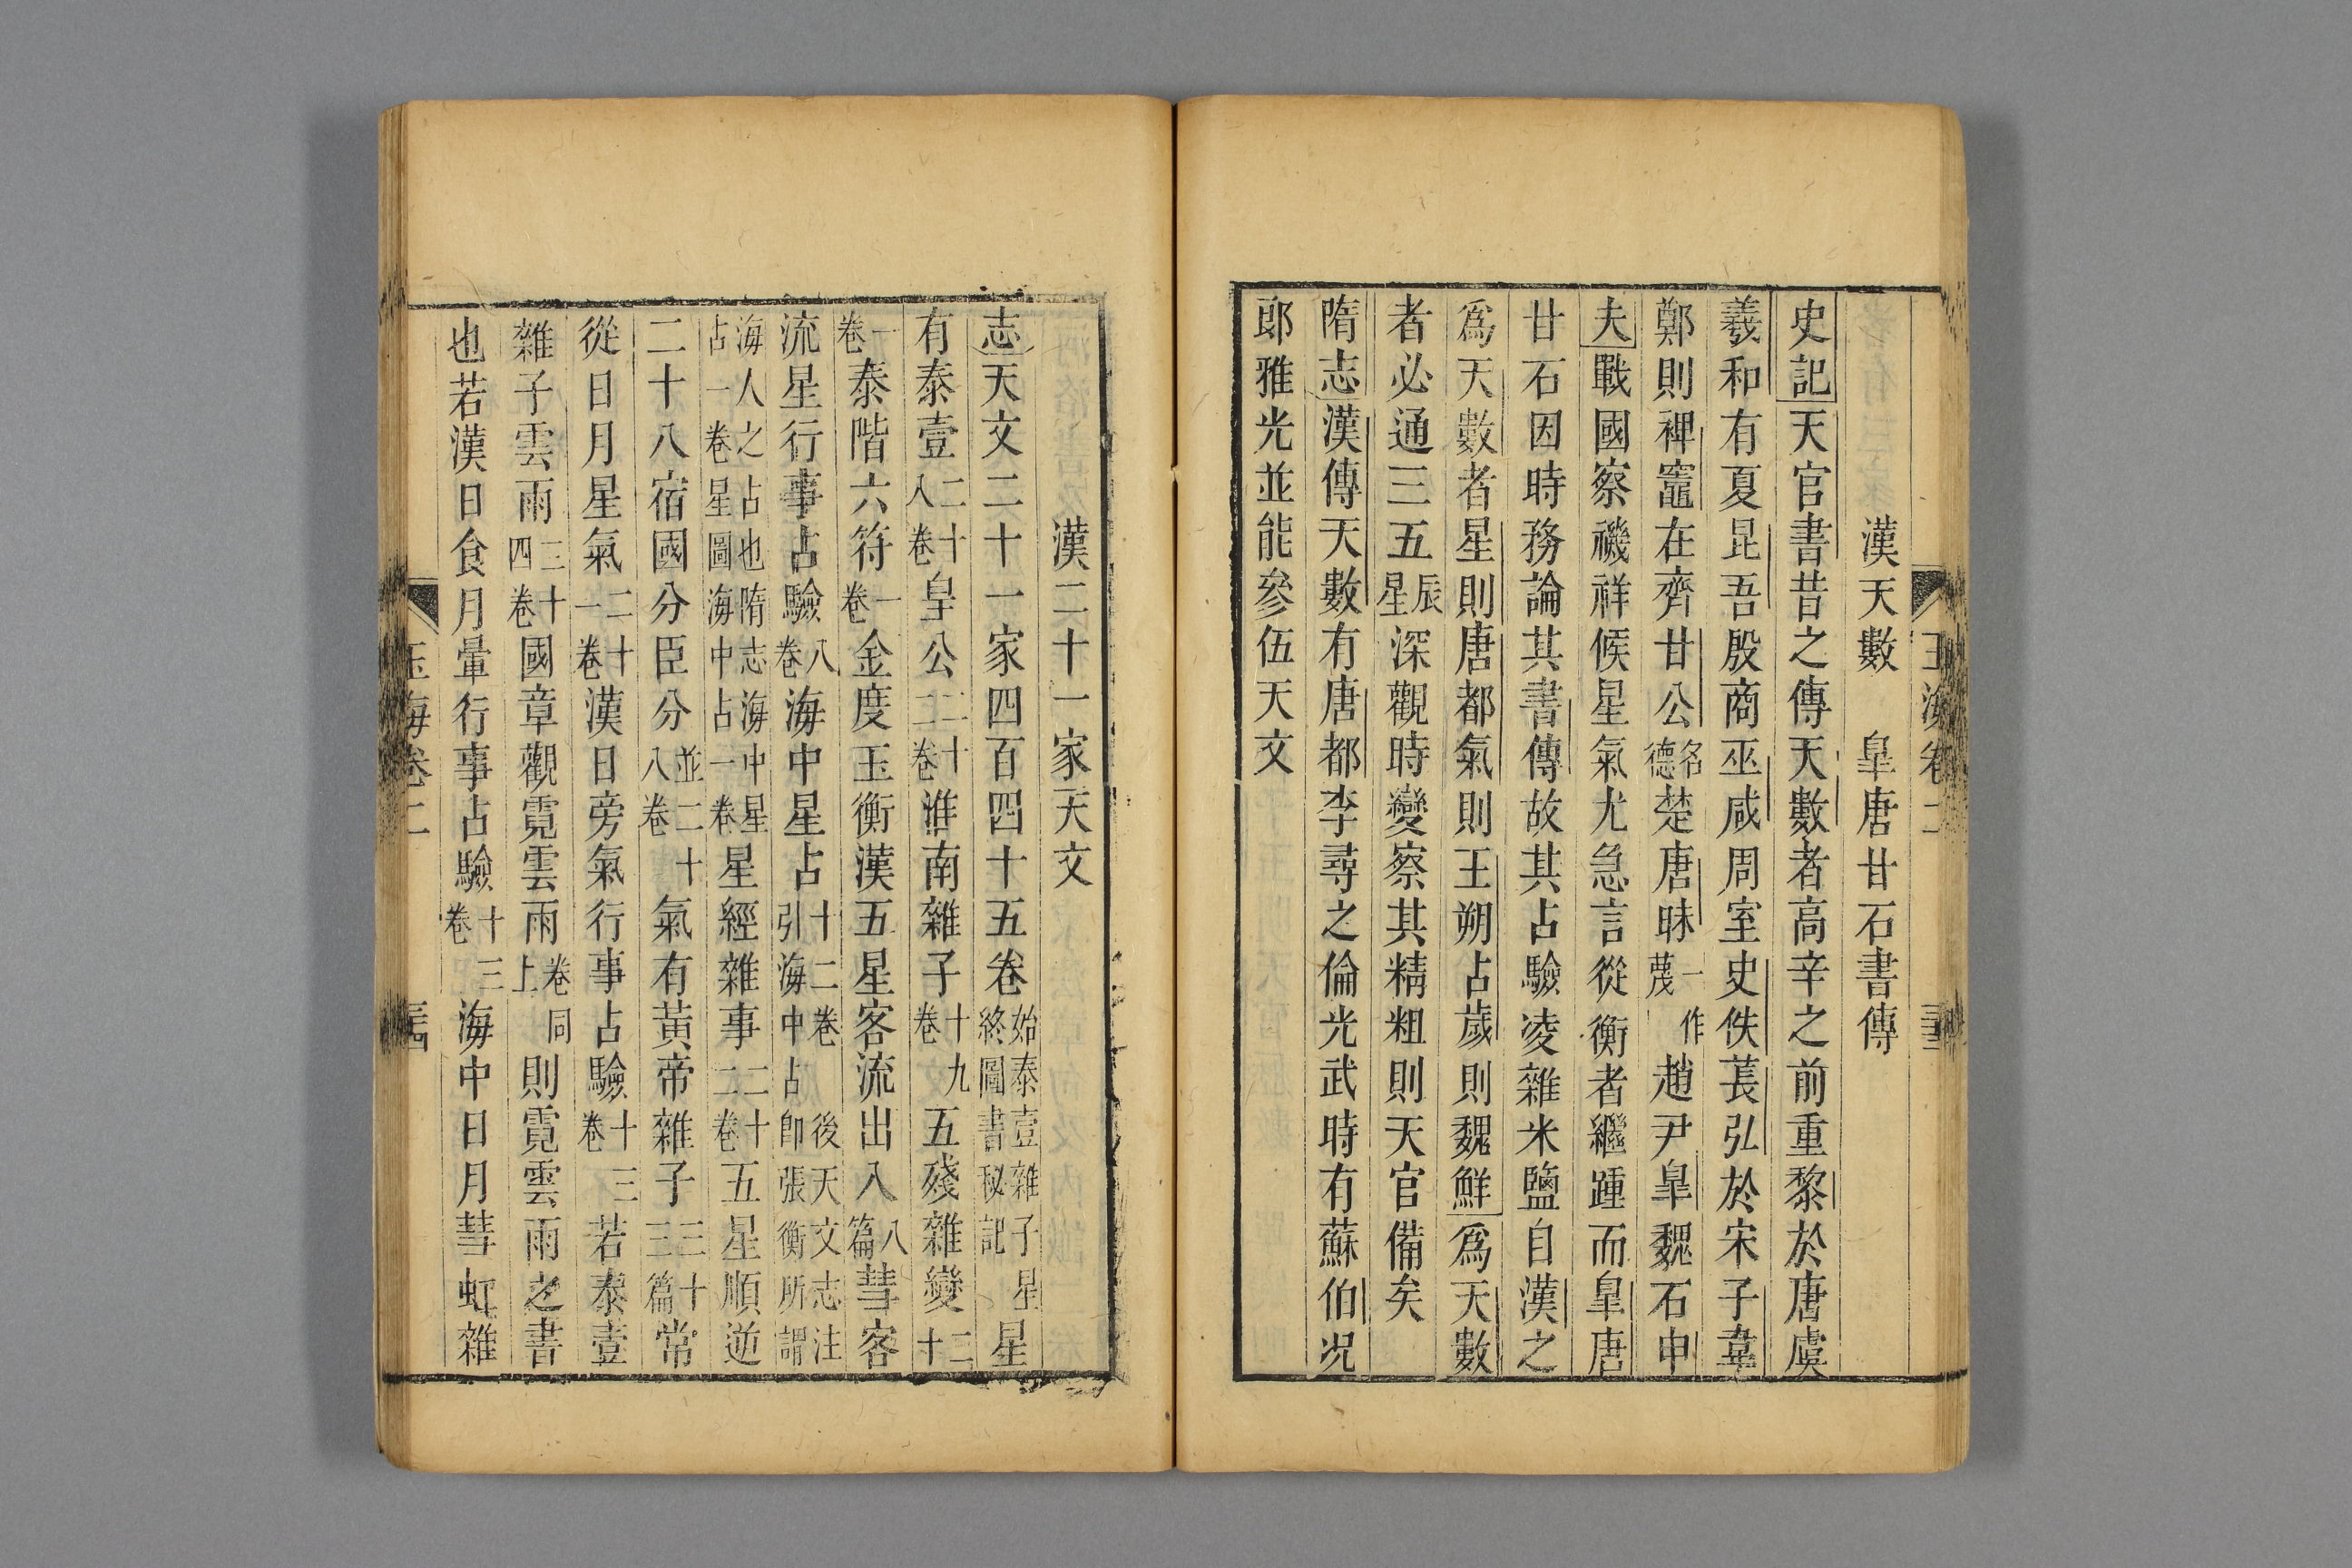 漢天數　皐唐甘石書傳
史記天官書昔之傳天數者高辛之前重黎於唐虞
羲和有夏昆吾殷商巫咸周室史佚萇弘於宋子韋
鄭則裨竈在齊甘公名德楚唐昧一作蔑趙尹皐魏石申
夫戰國察禨祥候星氣尤急言從衡者繼踵而皐唐
甘石因時務論其書傳故其占驗凌雜米鹽自漢之
爲天數者星則唐都氣則王朔占歲則魏鮮爲天數
者必通三五辰星深觀時變察其精粗則天官備矣
隋志漢傳天數有唐都李尋之倫光武時有蘇伯况
郎雅光並能參伍天文
玉海卷二
漢二十一家天文
志天文二十一家四百四十五卷始泰壹雜子星終圖書秘記星
有泰壹二十八卷皇公二十二卷淮南雜子十九卷五殘雜變二十
一卷泰階六符一卷金度玉衡漢五星客流出入八篇彗客
流星行事占驗八卷海中星占十二卷後天文志注引海中占卽張衡所謂
海人之占也隋志海中星占一卷星圖海中占一卷星經雜事二十二卷五星順逆
二十八宿國分臣分並二十八卷氣有黃帝雜子三十三篇常
從日月星氣二十一卷漢日旁氣行事占驗十三卷若泰壹
雜子雲雨三十四卷國章觀霓雲雨卷同上則霓雲雨之書
也若漢日食月暈行事占驗十三卷海中日月彗虹雜
玉海卷二